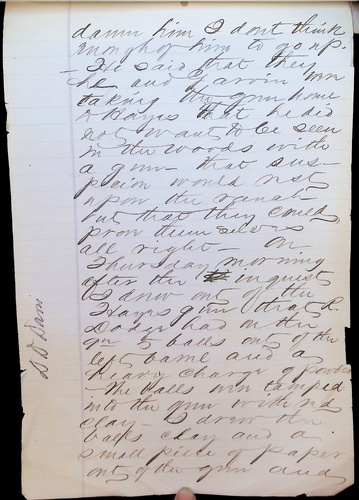 damn him I dont think
enough of him to go up.
He said that they
he and Garvin were
taking the gun home
to Hayes that he did
not want to be seen
in the woods with
a gun that sus-
pcion would rest
upon the
but that they could
prove them selves
all right — on
Thursday morning
after the inquest
I drew out of the
Hayes gun that R.
Dodge had on the
5 balls out of the
left barrel and a
heavy charge of powder
The balls were tamped
into the gun with red
clay — I drew the
balls clay and a
small piece of paper
out of the gun and
D D Davis